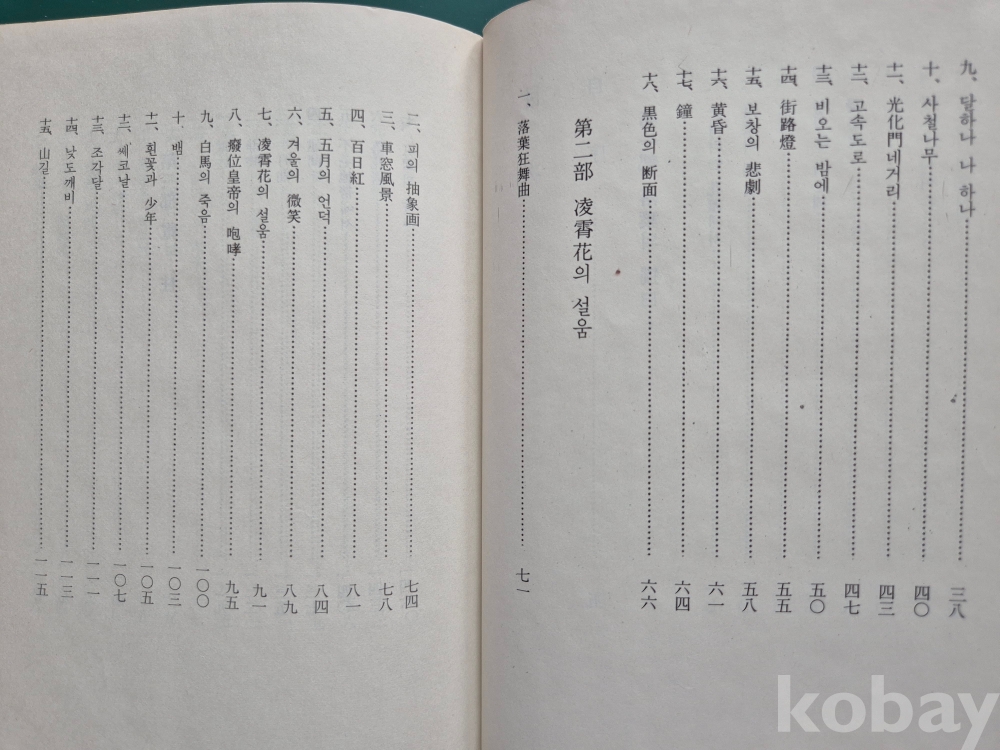 九、달하나 나 하나 三八
十、사철나무 四〇
十一、光化門네거리 四三
十二、고속도로 四七
十三、비오는 밤에 五〇
十四、街路燈 五五
十五、보창의 悲劇 五八
十六、黄昏 六一
十七、鐘 六四
十八、黒色의 断面 六六
第二部 凌霄花의 설움
一、落葉狂舞曲 七一
二、피의 抽象画 七四
三、車窓風景 七八
四、百日紅 八一
五、五月의 언덕 八四
六、겨울의 微笑 八九
七、凌霄花의 설움 九一
八、癈位皇帝의 咆哮 九五
九、白馬의 죽음 一〇〇
十、뱀 一〇三
十一、흰꽃과 少年 一〇五
十二、쎄코날 一〇七
十三、조각달 一一一
十四、낮도깨비 一一三
十五、山길 一一五
kobay